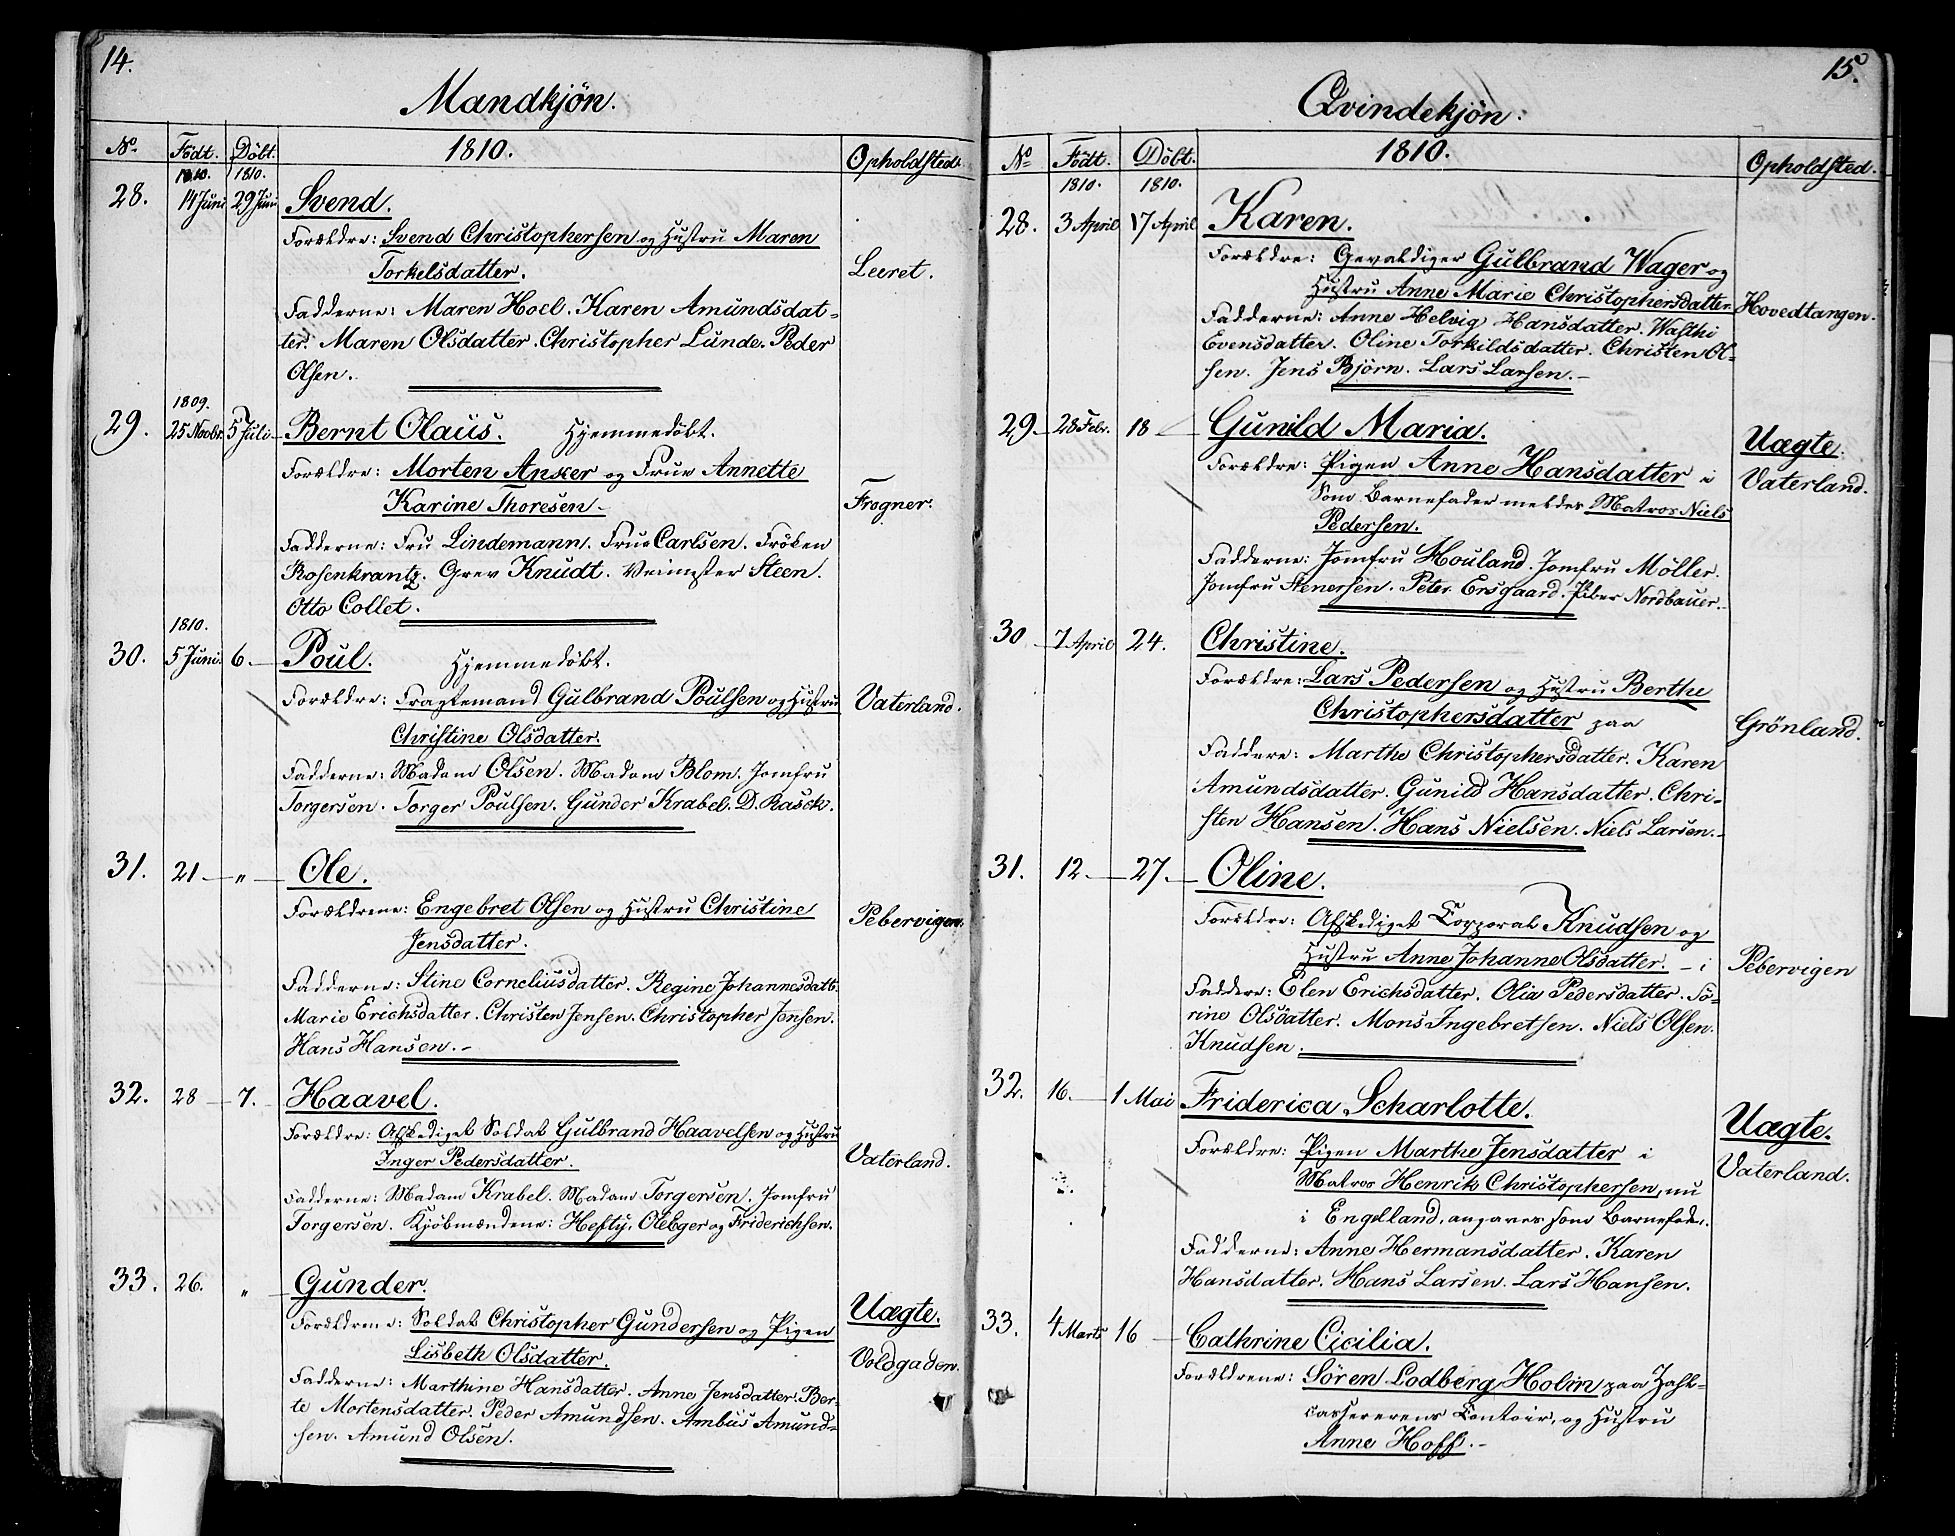 14.
Mandkjön.
No. Födt. Döbt. 1810. Opholdsted.
1810. 1810.
28. 14 Juni 29 Juni Svend.
Forældre: Svend Christophersen og Hustru Maren
Torkelsdatter. Leeret.
Fadderne: Maren Hoel. Karen Amundsdat-
ter. Maren Olsdatter. Christopher Lunde. Peder
Olsen.
1809.
29. 25 Novbr. 5 Juli Bernt Olaus. Hjemmedöbt.
Forældre: Morten Anker og Frue Annette
Karine Thoresen Frogner.
Fadderne: Fru Lindemann. Frue Carlsen. Fröken
Rosenkrantz. Grev Knudt. Veimester Steen.
Otto Collet.
1810.
30. 5 Juni. 6. Poul. Hjemmedöbt.
Forældre: Fragtemand Gulbrand Poulsen og Hustru Vaterland.
Christine Olsdatter.
Fadderne: Madam Olsen. Madam Blom. Jomfru
Torgersen. Torger Poulsen. Gunder Krabel. D. Rasck.
31. 21 — " — Ole.
Forældrene: Engebret Olsen og Hustru Christine Pebervigen.
Jensdatter.
Fadderne: Stine Corneliusdatter. Regine Johannesdatt.
Marie Erichsdatter. Christen Jensen. Christopher Jensen.
Hans Hansen.
32. 28 — 7. Haavel.
Forældre: Afskediget Soldat Gulbrand Haavelsen og Hustru
Inger Pedersdatter. Vaterland.
Fadderne: Madam Krabel. Madam Torgersen. Jomfru
Torgersen. Kjöbmændene: Hefty, Oleger og Friderichsen.
33. 26. " Gunder.
Forældrene: Soldat Christopher Gundersen og Pigen Uægte.
Lisbeth Olsdatter. Voldgaden.
Fadderne: Marthine Hansdatter. Anne Jensdatter. Ber-
te Mortensdatter. Peder Amundsen. Ambus Amund-
sen. Amund Olsen.
15.
Qvindekjön:
No Födt. Döbt. 1810. Opholdsted.
1810. 1810.
28. 3 April 17 April Karen.
Forældre: Gevaldiger Gulbrand Wager og
Hustru Anne Marie Christophersdatter. Hovedtangen.
Fadderne: Anne Helvig Hansdatter. Walthi
Evensdatter. Oline Torkildsdatter. Christen Ol-
sen. Jens Björn. Lars Larsen.
29 28 Febr. 18 Gunild Maria.
Uægte.
Forældre: Pigen Anne Hansdatter i Vaterland.
Som Barnefader meldes Matros Niels
Pedersen.
Fadderne: Jomfru Houland. Jomfru Möller.
Jomfru Stenersen. Peter Ersgaard. Piber Nordbauer.
30 7 April 24. Christine.
Forældre: Lars Pedersen og Hustru Berthe
Christophersdatter paa Grönland.
Faddere: Marthe Christophersdatter. Karen
Amundsdatter. Gunild Hansdatter. Chri-
sten Hansen. Hans Nielsen. Niels Larsen.
31. 12 — 27. Oline.
Forældre: Afskediget Corporal Knudsen og
Hustru Anne Johanne Olsdatter. — i Pebervigen
Faddere: Elen Erichsdatter. Olia Pedersdatter. Sö-
rine Olsdatter. Mons Ingebretsen. Niels Olsen.
Knudsen.
32. 16. — 1 Mai Friderica Scharlotte.
Uægte.
Forældre: Pigen Marthe Jensdatter i Vaterland.
Matros Henrik Christophersen, nu
i Engelland, angaves som Barnefader.
Fadderne: Anne Hermansdatter. Karen
Hansdatter. Hans Larsen. Lars Hansen.
33. 4 Marts 16 — Cathrine Cicilia.
Forældrene: Sören Lodberg Holm paa Zahl-
cassererens Contoir, og Hustru
Anne Hoff.